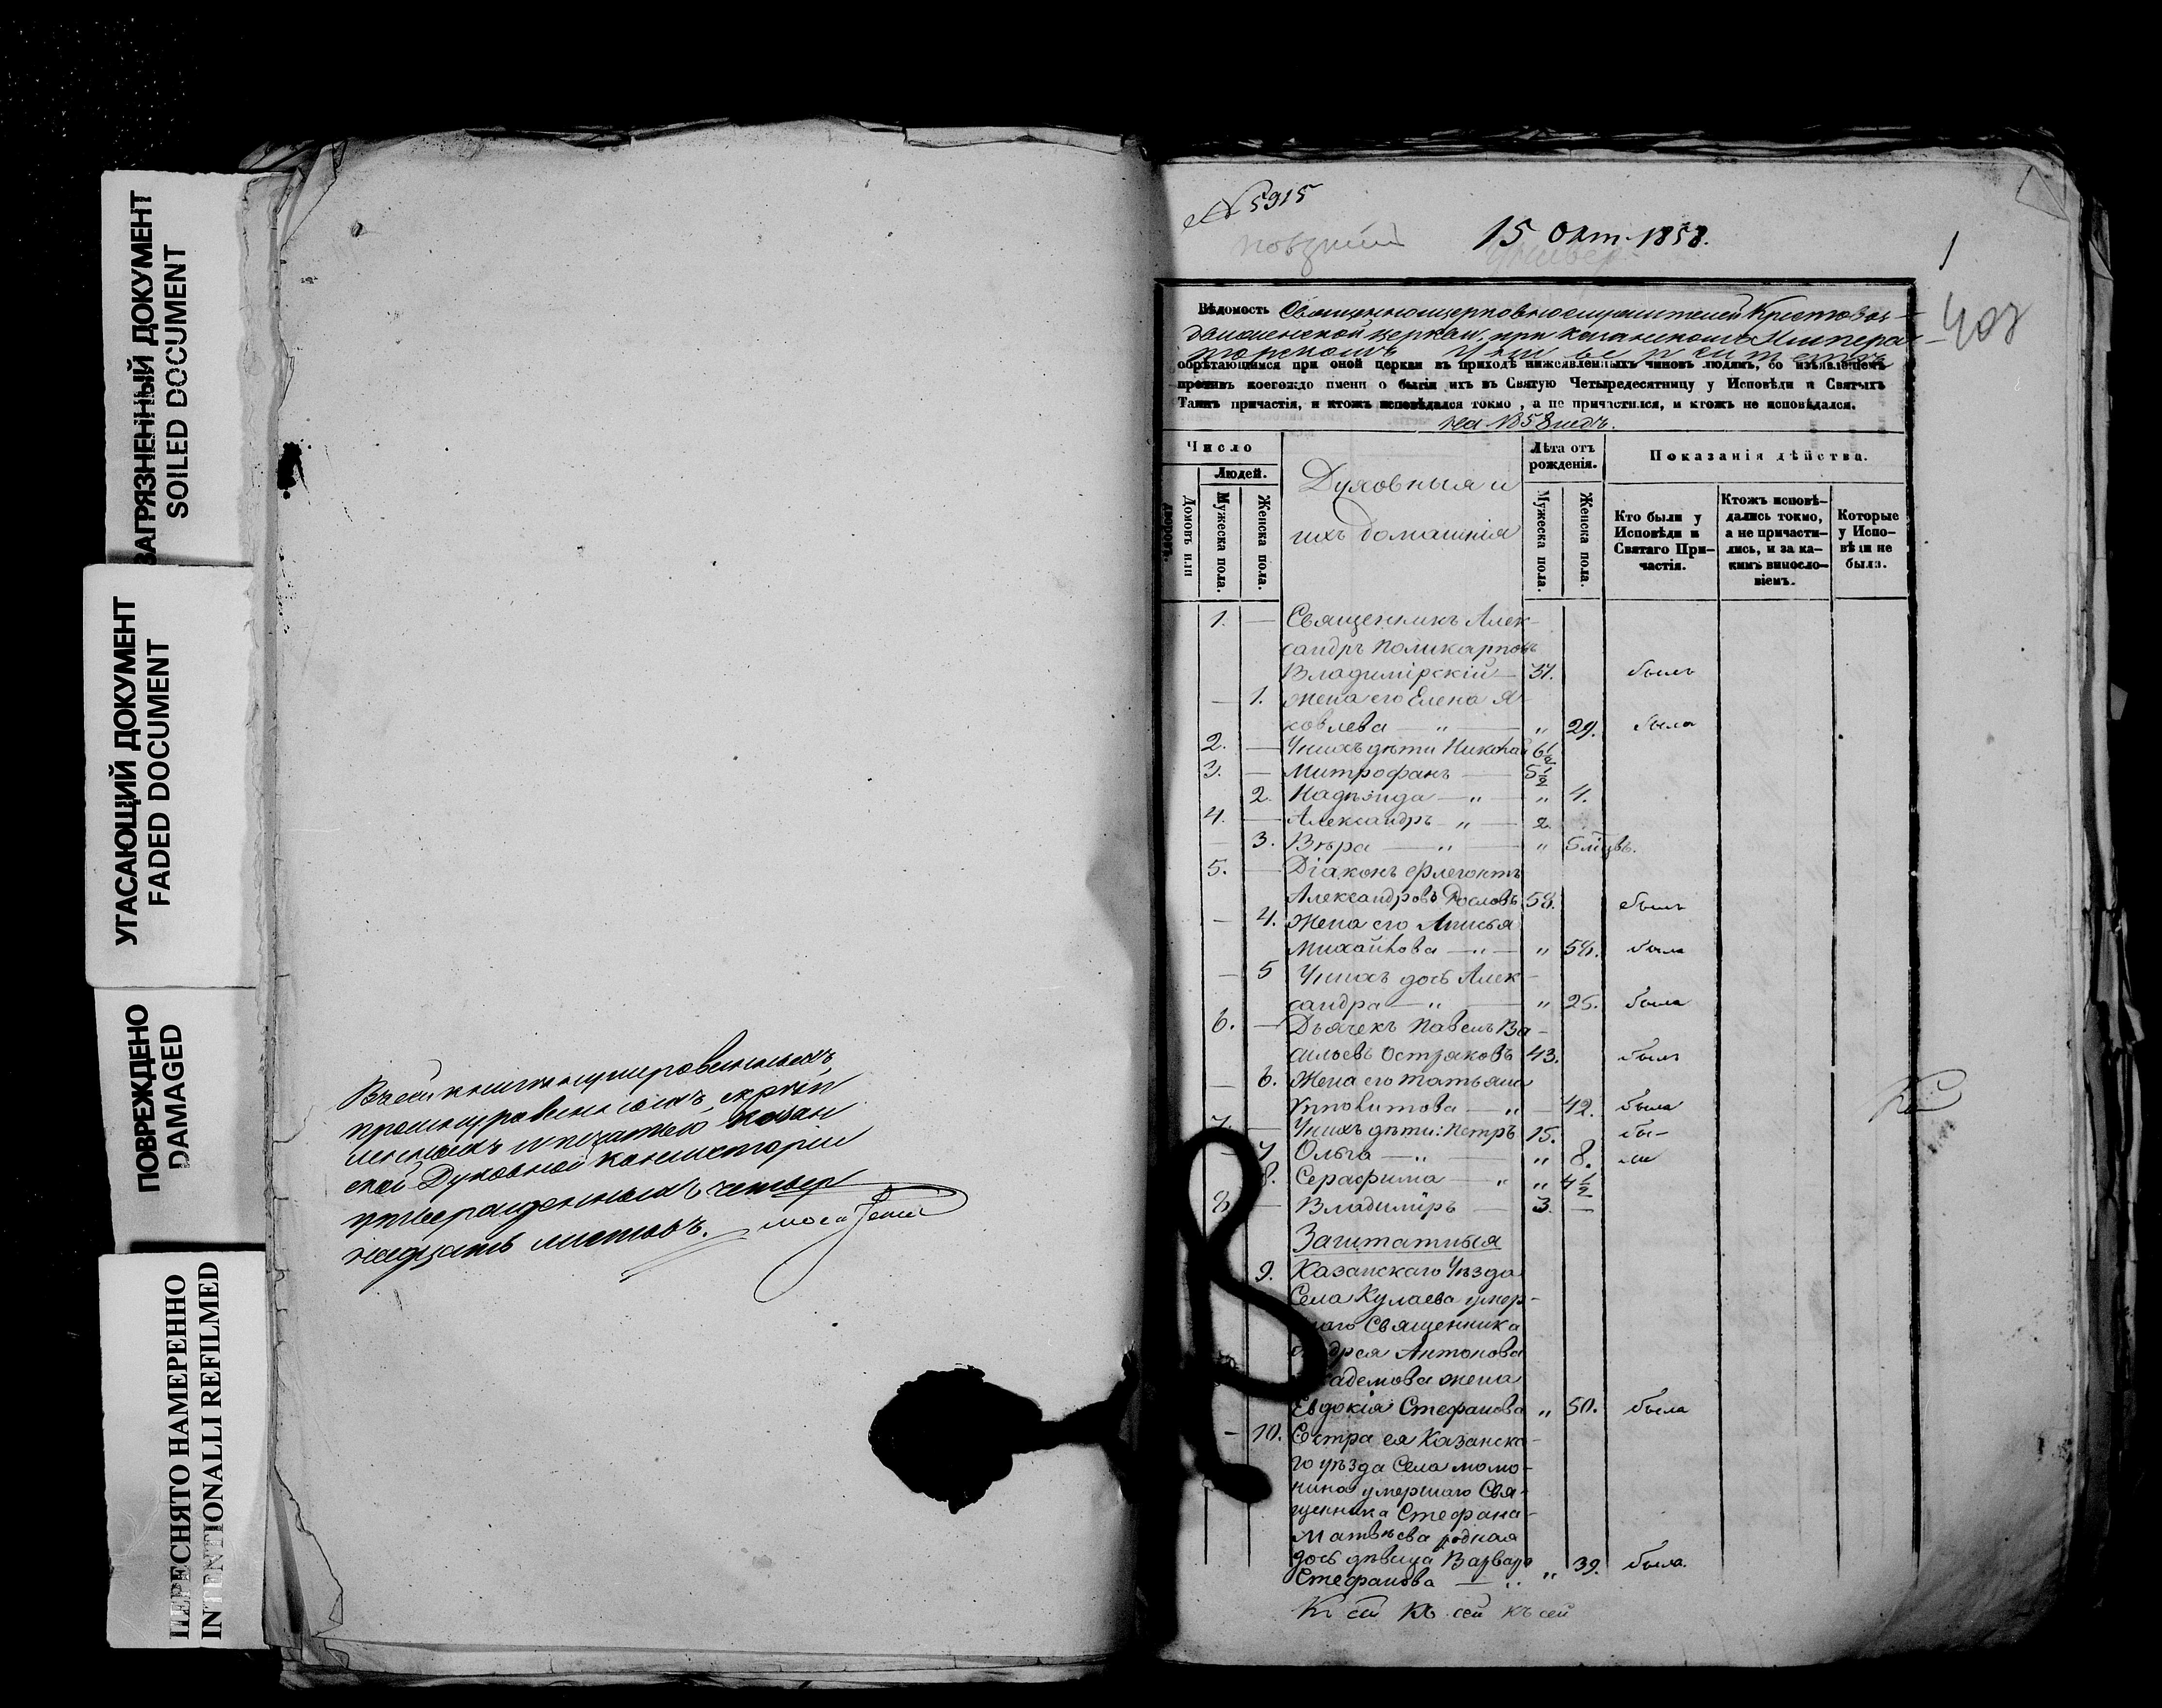 ЗАГРЯЗНЕННЫЙ ДОКУМЕНТ
SOILED DOCUMENT
УГАСАЮЩИЙ ДОКУМЕНТ
FADED DOCUMENT
ПОВРЕЖДЕНО
DAMAGED
ПЕРЕСНЯТО НАМЕРЕННО
INTENTIONALLI REFILMED
Въ сей книгѣ нумерованныхъ,
прошнурованныхъ, скрѣп
ленныхъ и печатью Казан
ской Духовной консисторіи
утвержденныхъ четыр
надцать листовъ.
№ 5915
15 Окт. 1858.
1
Вѣдомость Священноцерковнослужителей Крестовоз-
движенской церкви, при Казанскомъ Импера-
торскомъ Университетѣ
обрѣтающимся при оной церкви въ приходѣ нижеявленныхъ чиновъ людямъ, со изъявленіемъ
противъ коегождо имени о бытіи ихъ въ Святую Четыредесятницу у Исповѣди и Святыхъ
Таинъ причастія, и ктожъ исповѣдался токмо, а не причастился, и ктожъ не исповѣдался.
на 1858 годъ.
Число
Людей.
Домовъ или дворовъ.
Мужеска пола.
Женска пола.
Духовныя и
ихъ домашнія
Лѣта отъ рожденія.
Мужеска пола.
Женска пола.
Показанія дѣйства.
Кто были у Исповѣди и Святаго Причастія.
Ктожъ исповѣ-
дались токмо,
а не причасти-
лись, и за ка-
кимъ винносло-
віемъ.
Которые
у Испо-
вѣди не
были.
1. — Священникъ Алек-
сандръ Поликарповъ
Владимірскій — 37. былъ
— 1. Жена его Елена Я-
ковлева — " — " 29. была
2. — У нихъ дѣти Николай 6½
3. — Митрофанъ — 5½
2. Надѣжда — " — " 4.
4. — Александръ — " — 2.
— 3. Вѣра — " — " 5 мѣцвъ.
5. — Діаконъ Флегонтъ
Александровъ 58. былъ
— 4. Жена его Анисья
Михайлова — " — " 54. была
— 5 У нихъ дочь Алек-
сандра — " — " 25. была
6. — Дьячекъ Павелъ Ва-
сильевъ Остряковъ 43. былъ
— 6. Жена его Татьяна
— " — 42. была
7. — У нихъ дѣти: Петръ 15. бы-
— 7 Ольга — " — " 8. ли
8. Серафима — " " 4½
8 — Владиміръ — 3. —
Заштатныя
9. Казанскаго Уѣзда
Села Кулаева умер-
шаго Священника
Андрея Антонова
жена
Евдокія Стефанова " 50. была
— 10. Сестра ея Казанска-
го уѣзда Села
умершаго Свя-
щенника Стефана
Матвѣева родная
дочь дѣвица Варвара
Стефанова — " " 39. была.
Къ сей Къ сей Къ сей